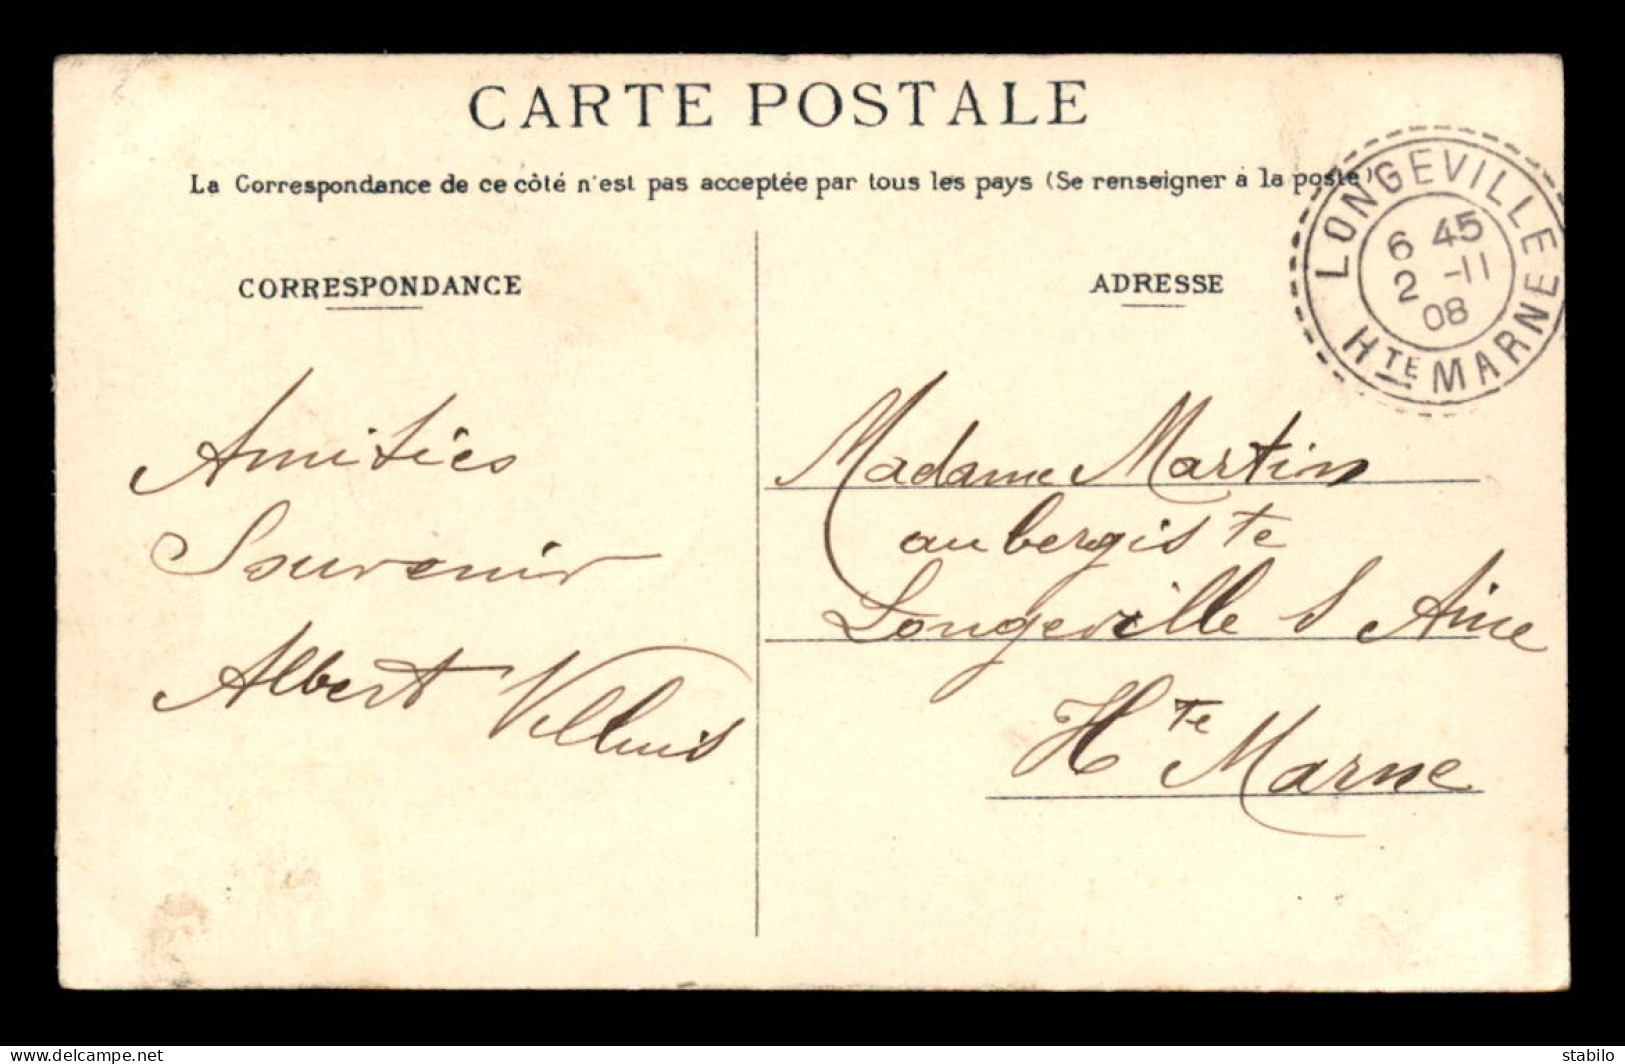 CARTE POSTALE
La Correspondance de ce côté n'est pas acceptée par tous les pays (Se renseigner à la poste)
CORRESPONDANCE
Amitiés
Souvenir
Albert
ADRESSE
LONGEVILLE
6 45
2 -11
08
HTE MARNE
Madame Martin
aubergiste
Longeville s Aine
Hte Marne
www.delcampe.net
stabilo